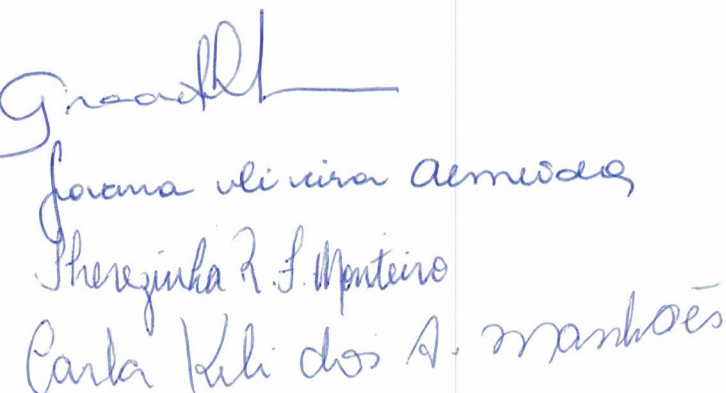 Jovana Oliveira Almeida
Therezinha R. F. Monteiro
Carla Keli dos A. Manhães